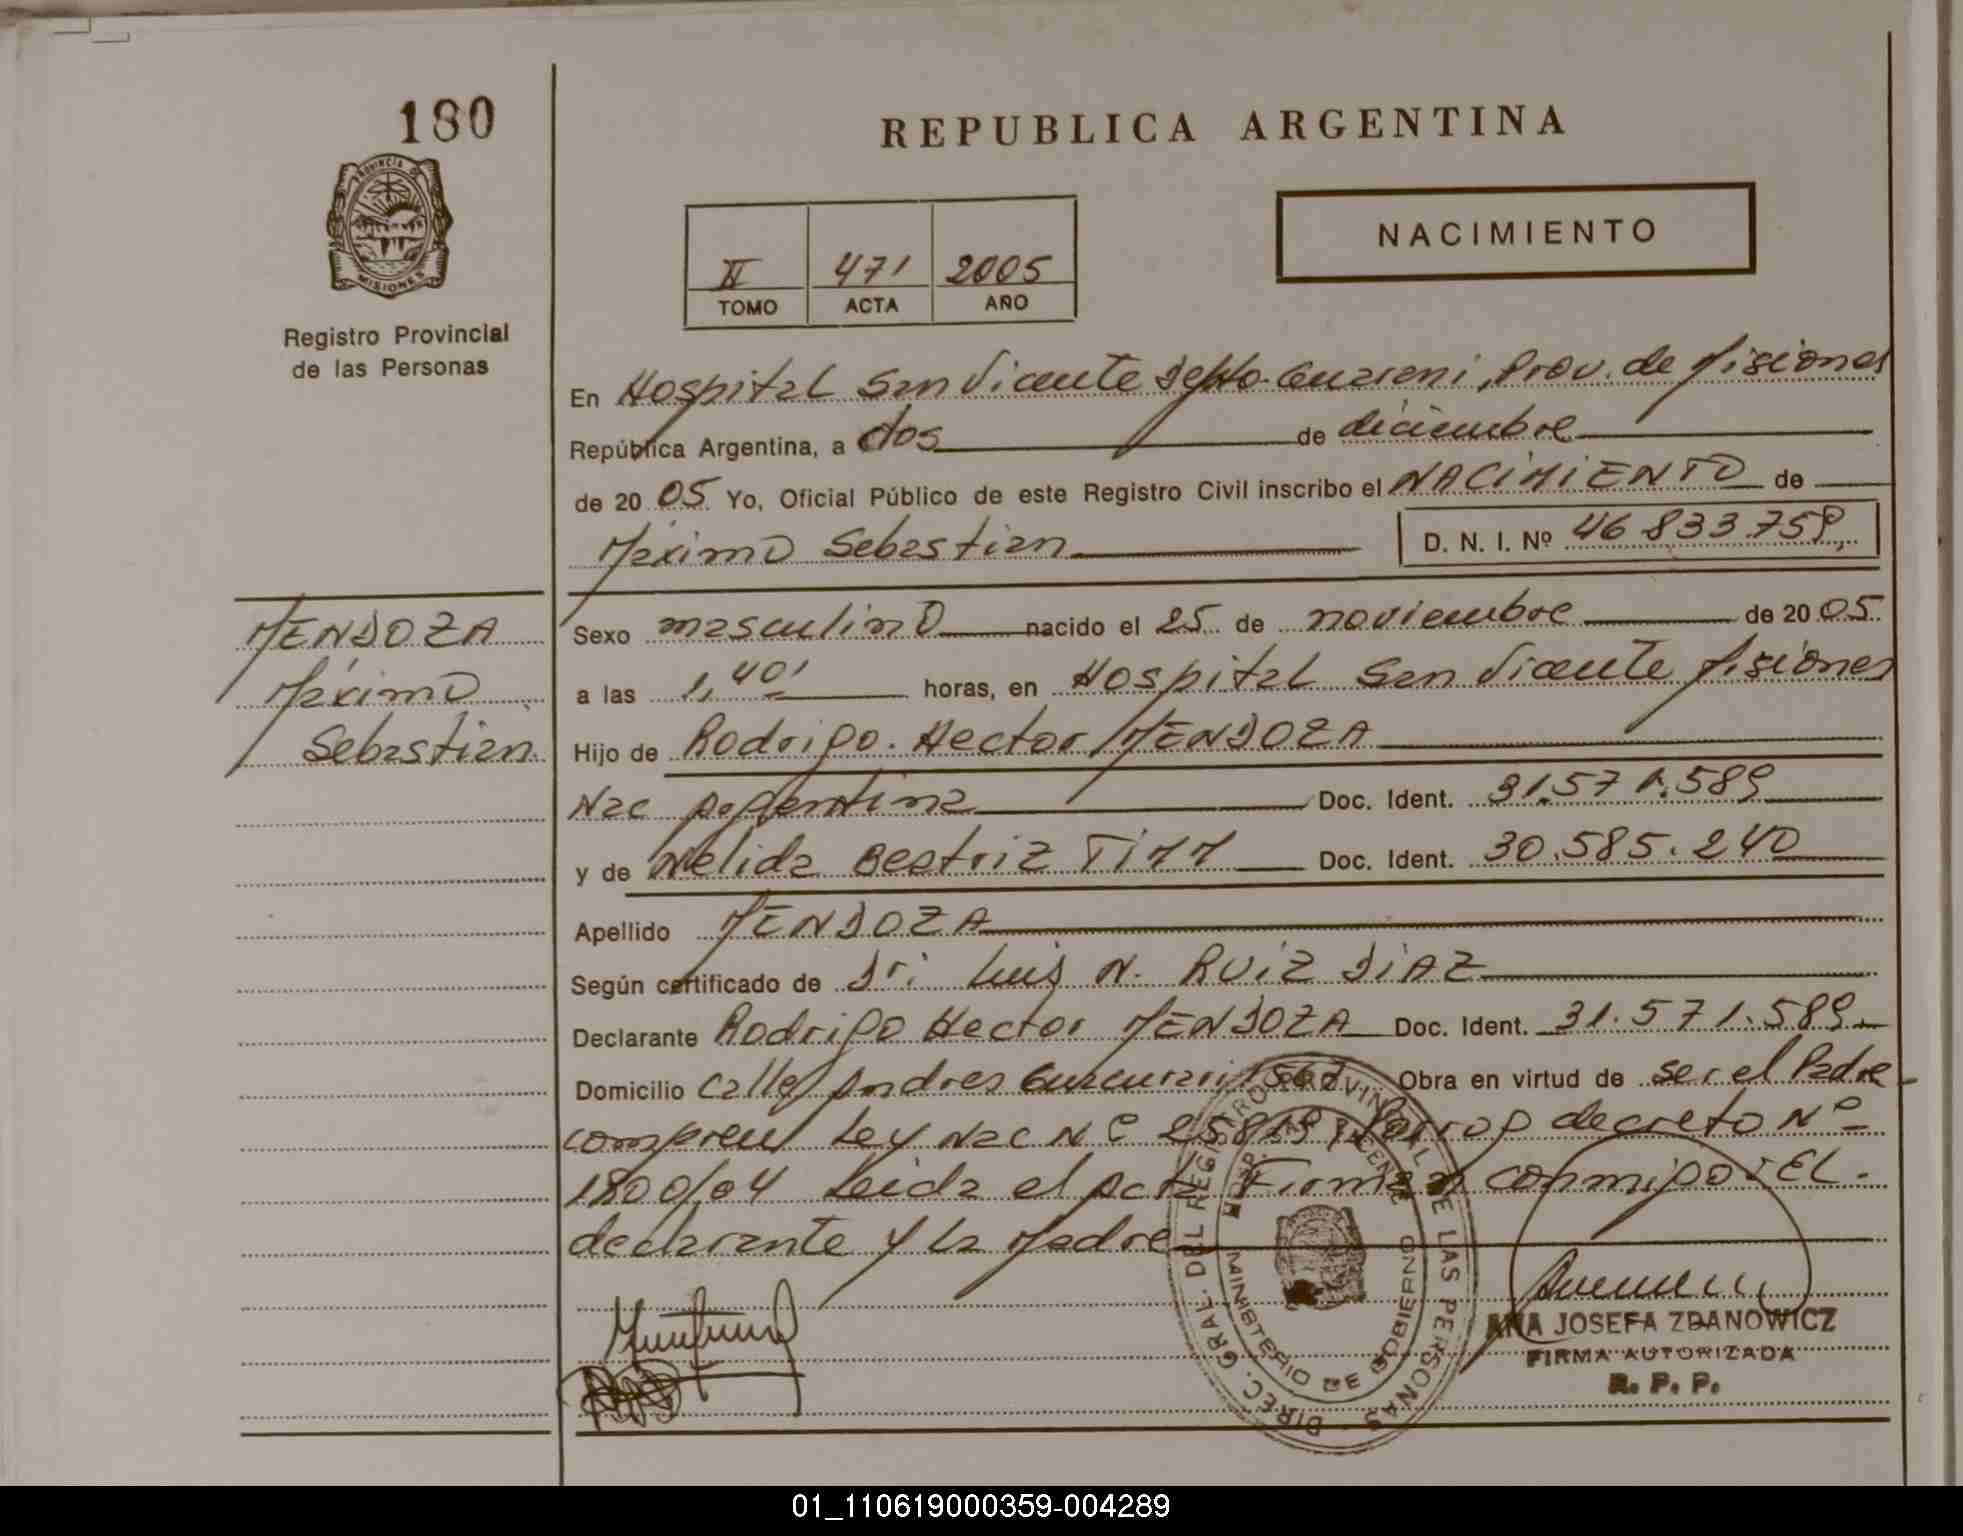 180
REPUBLICA ARGENTINA
PROVINCIA DE
MISIONES
Registro Provincial
de las Personas
NACIMIENTO
II 471 2005
TOMO ACTA AÑO
En Hospital San Vicente Depto. Guarani, Prov. de Misiones
República Argentina, a dos de diciembre
de 20 05 Yo, Oficial Público de este Registro Civil inscribo el NACIMIENTO de
Máximo Sebastian D. N. I. Nº 46 833 759
MENDOZA
Máximo
Sebastian
Sexo masculino nacido el 25 de noviembre de 20 05
a las 1,40' horas, en Hospital San Vicente Misiones
Hijo de Rodrigo Hector MENDOZA
Nac Argentina Doc. Ident. 31.571.589
y de Nelida Beatriz TIMM Doc. Ident. 30.585.240
Apellido MENDOZA
Según certificado de Dr. Luis N. RUIZ DIAZ
Declarante Rodrigo Hector MENDOZA Doc. Ident. 31.571.589
Domicilio Calle Andres Guacurari Obra en virtud de ser el Padre
Ley Nac Nº 25819 decreto Nº
1800/04 Leida el acta Firman conmigo EL
declarante y la Madre
DIREC. GRAL. DEL REGISTRO PROVINCIAL DE LAS PERSONAS
HOSP. SAN VICENTE
MINISTERIO DE GOBIERNO
ANA JOSEFA ZDANOWICZ
FIRMA AUTORIZADA
R. P. P.
01_110619000359-004289